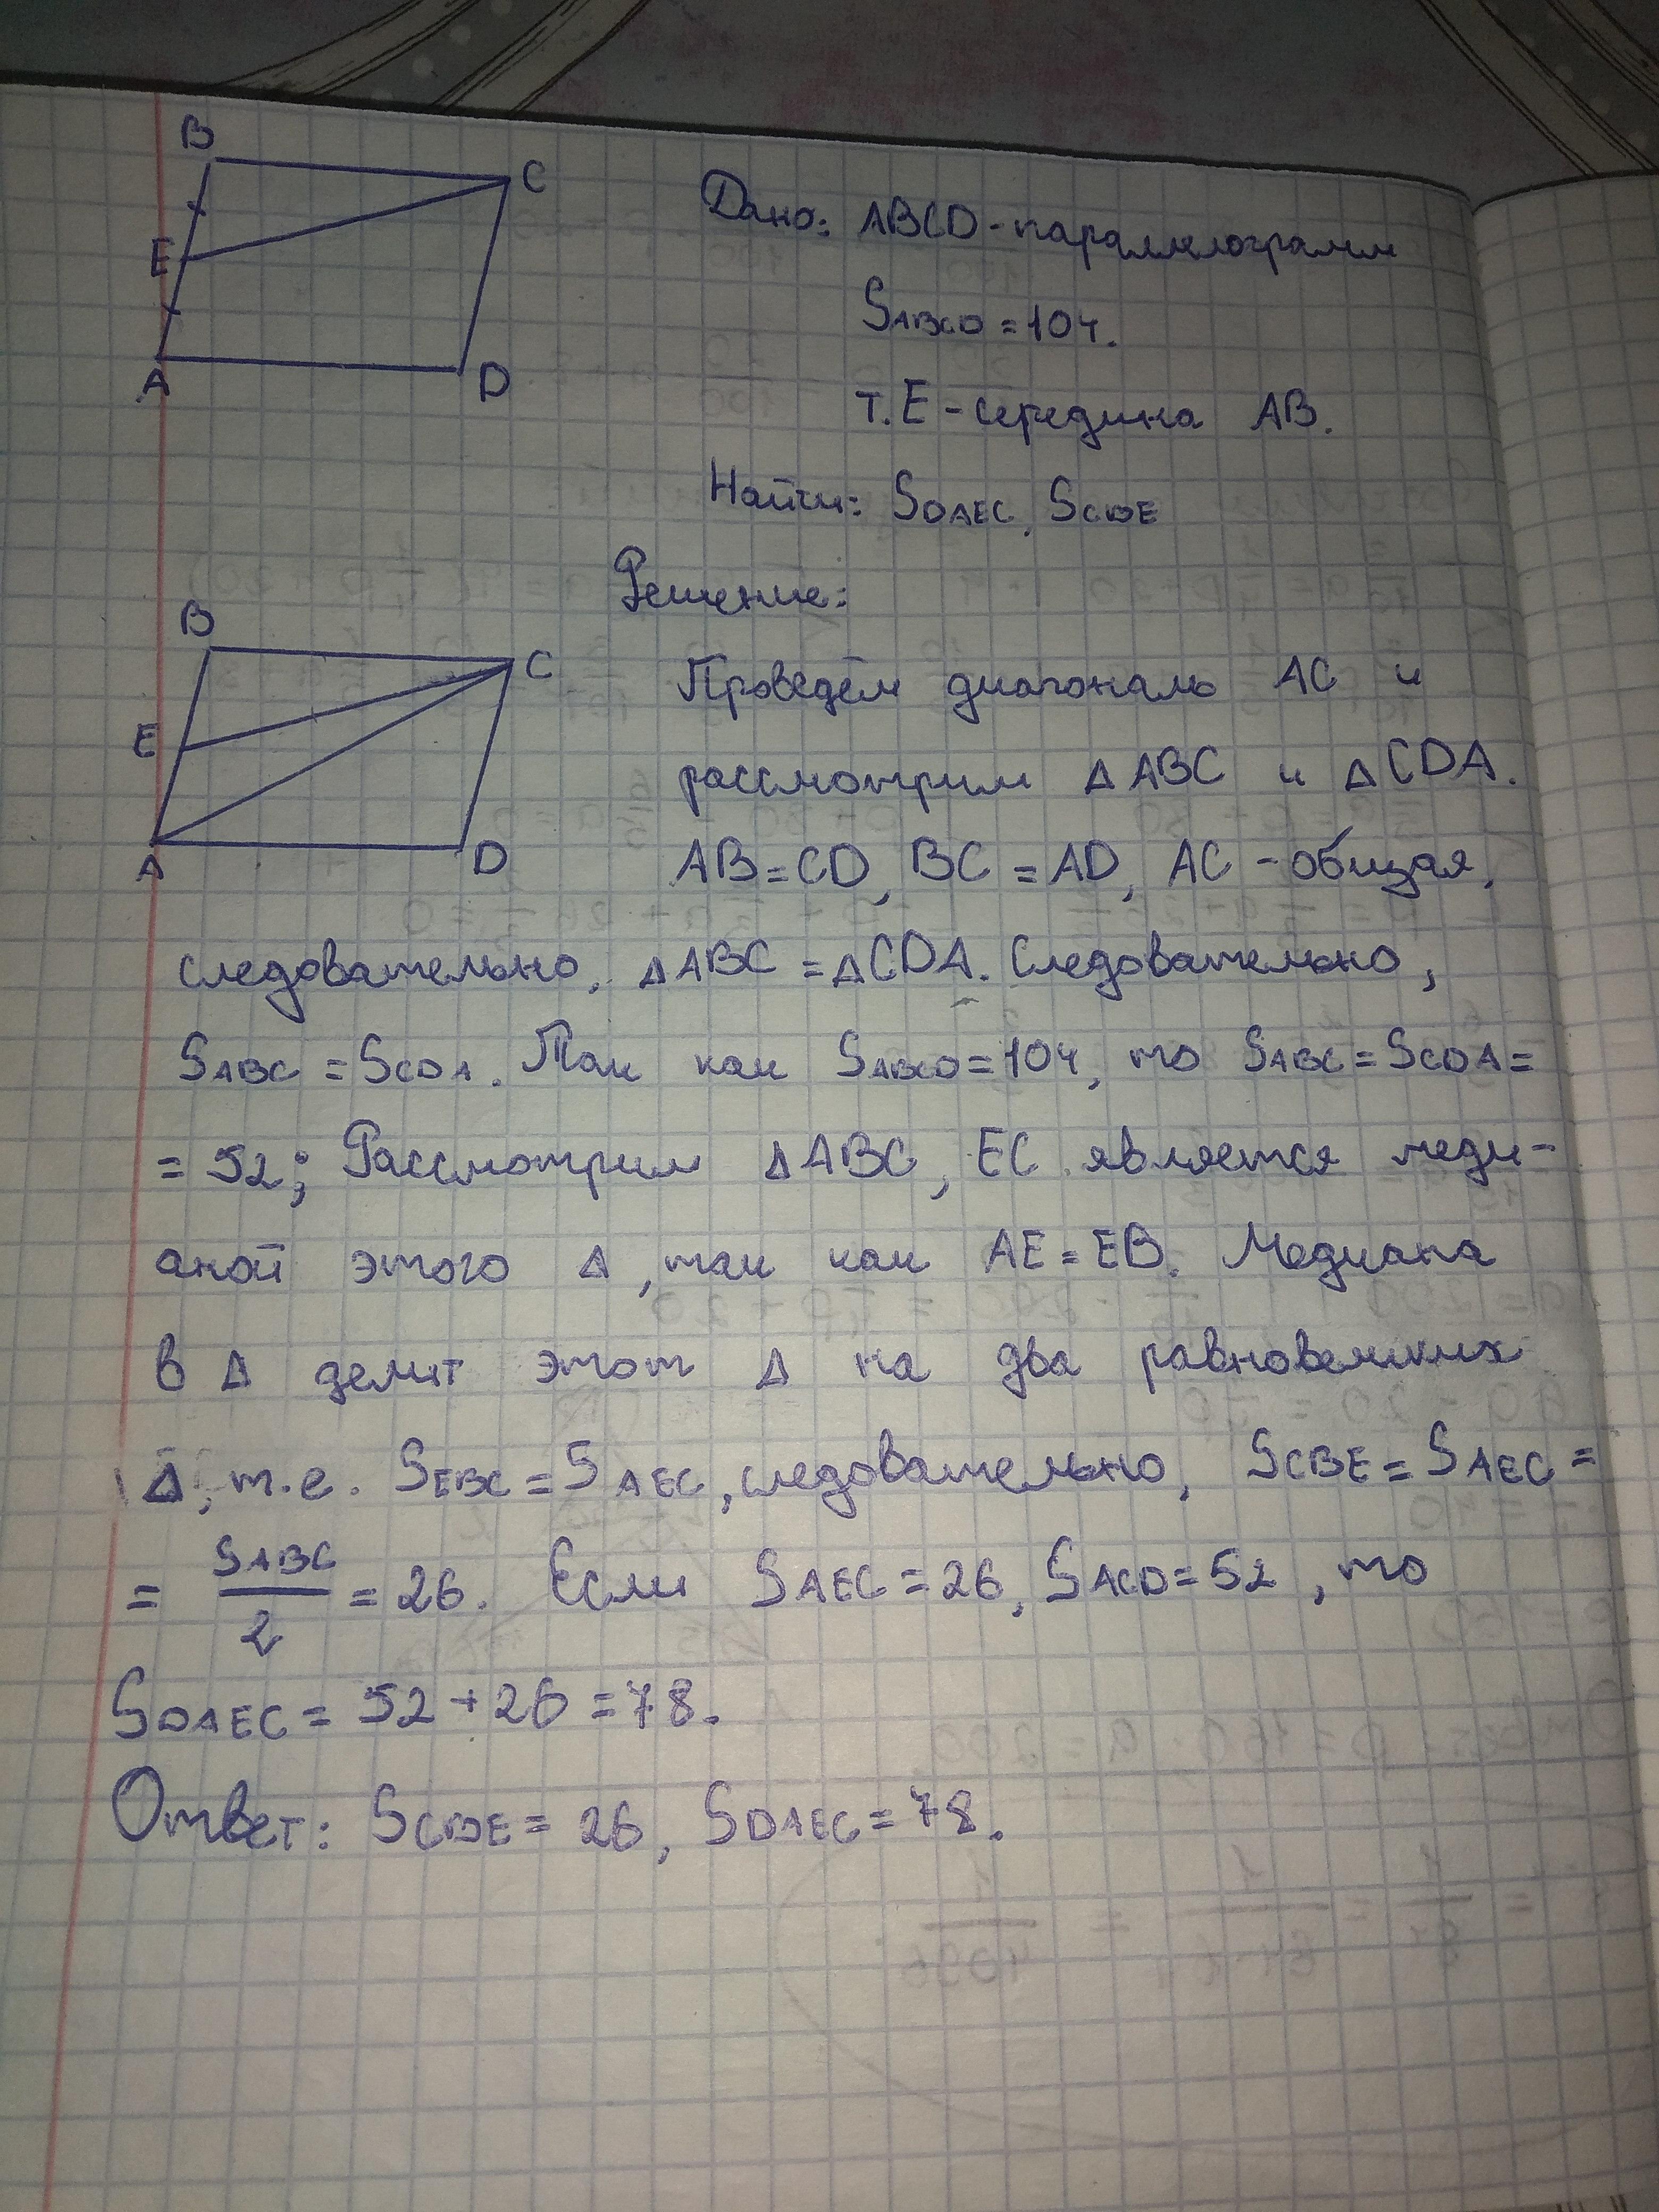 B
C
E
A
D
Дано: ABCD - параллелограмм
SABCD = 104.
т. E - середина AB.
Найти: SDAEC, SCBE
Решение:
B
C
E
A
D
Проведём диагональ AC и
рассмотрим Δ ABC и Δ CDA.
AB = CD, BC = AD, AC - общая,
следовательно, Δ ABC = Δ CDA. Следовательно,
SABC = SCDA. Так как SABCD = 104, то SABC = SCDA =
= 52; Рассмотрим Δ ABC, EC является меди-
аной этого Δ, так как AE = EB. Медиана
в Δ делит этот Δ на два равновеликих
Δ, т.е. SEBC = SAEC, следовательно, SCBE = SAEC =
= SABC / 2 = 26. Если SAEC = 26, SACD = 52, то
SDAEC = 52 + 26 = 78.
Ответ: SCBE = 26, SDAEC = 78.